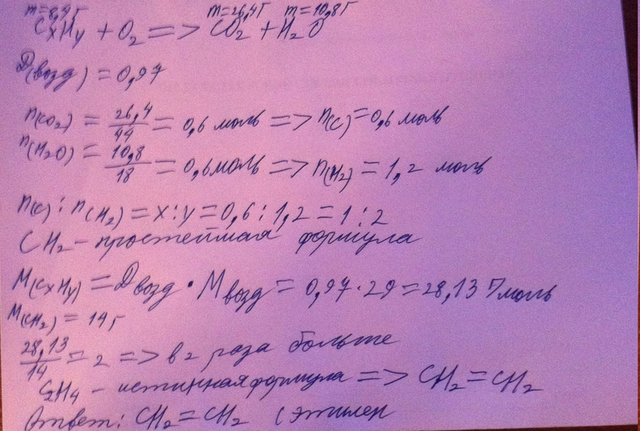 m=8,4г m=26,4г m=10,8г
CxHy + O2 => CO2 + H2O
D(возд) = 0,97
n(CO2) = 26,4/44 = 0,6 моль => n(C) = 0,6 моль
n(H2O) = 10,8/18 = 0,6 моль => n(H2) = 1,2 моль
n(C) : n(H2) = x : y = 0,6 : 1,2 = 1 : 2
CH2 - простейшая формула
M(CxHy) = Dвозд · Mвозд = 0,97 · 29 = 28,13 г/моль
M(CH2) = 14г
28,13/14 = 2 => в 2 раза больше
C2H4 - истинная формула => CH2=CH2
Ответ: CH2=CH2 (этилен